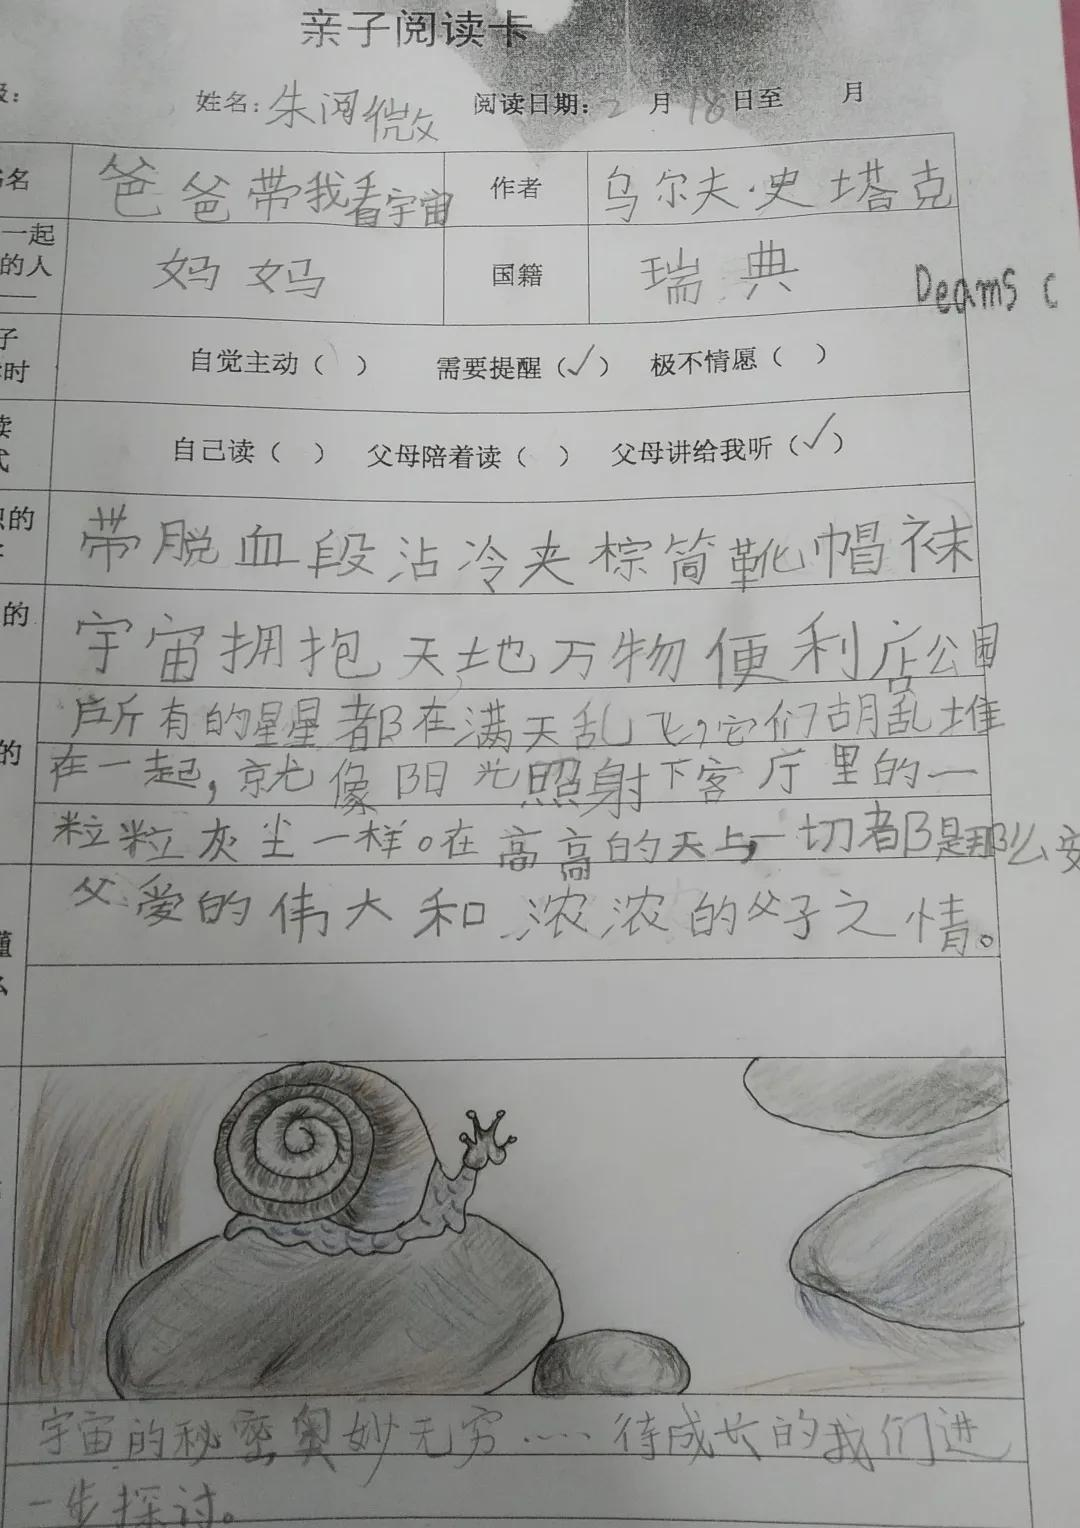 亲子阅读卡
级： 姓名：朱闵微 阅读日期：2月18日至 月
书名 爸爸带我看宇宙 作者 乌尔夫·史塔克
一起
的人 妈妈 国籍 瑞典
Deams C
子
时 自觉主动（ ） 需要提醒（✓） 极不情愿（ ）
读
式 自己读（ ） 父母陪着读（ ） 父母讲给我听（✓）
识的
带脱血段沾冷夹棕筒靴帽袜
的
宇宙拥抱天地万物便利店公园
所有的星星都在满天乱飞,它们胡乱堆
的 在一起,就像阳光照射下客厅里的一
粒粒灰尘一样。在高高的天上,一切都是那么安
父爱的伟大和浓浓的父子之情。
懂
么
宇宙的秘密奥妙无穷……待成长的我们进
一步探讨。